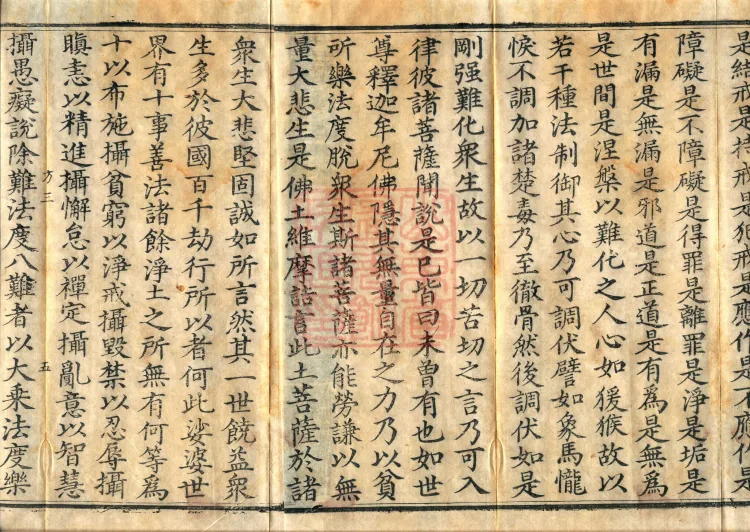 是結戒是持戒是犯戒是應作是不應作是
障礙是不障礙是得罪是離罪是淨是垢是
有漏是無漏是邪道是正道是有為是無為
是世間是涅槃以難化之人心如猨猴故以
若干種法制御其心乃可調伏譬如象馬㦬
悷不調加諸楚毒乃至徹骨然後調伏如是
剛强難化衆生故以一切苦切之言乃可入
律彼諸菩薩聞說是已皆曰未曽有也如世
尊釋迦牟尼佛隱其無量自在之力乃以貧
所樂法度脫衆生斯諸菩薩亦能勞謙以無
量大悲生是佛土維摩詰言此土菩薩於諸
衆生大悲堅固誠如所言然其一世饒益衆
生多於彼國百千劫行所以者何此娑婆世
界有十事善法諸餘淨土之所無有何等為
十以布施攝貧窮以淨戒攝毀禁以忍辱攝
瞋恚以精進攝懈怠以禪定攝亂意以智慧
方三 五
攝愚癡說除難法度八難者以大乘法度樂